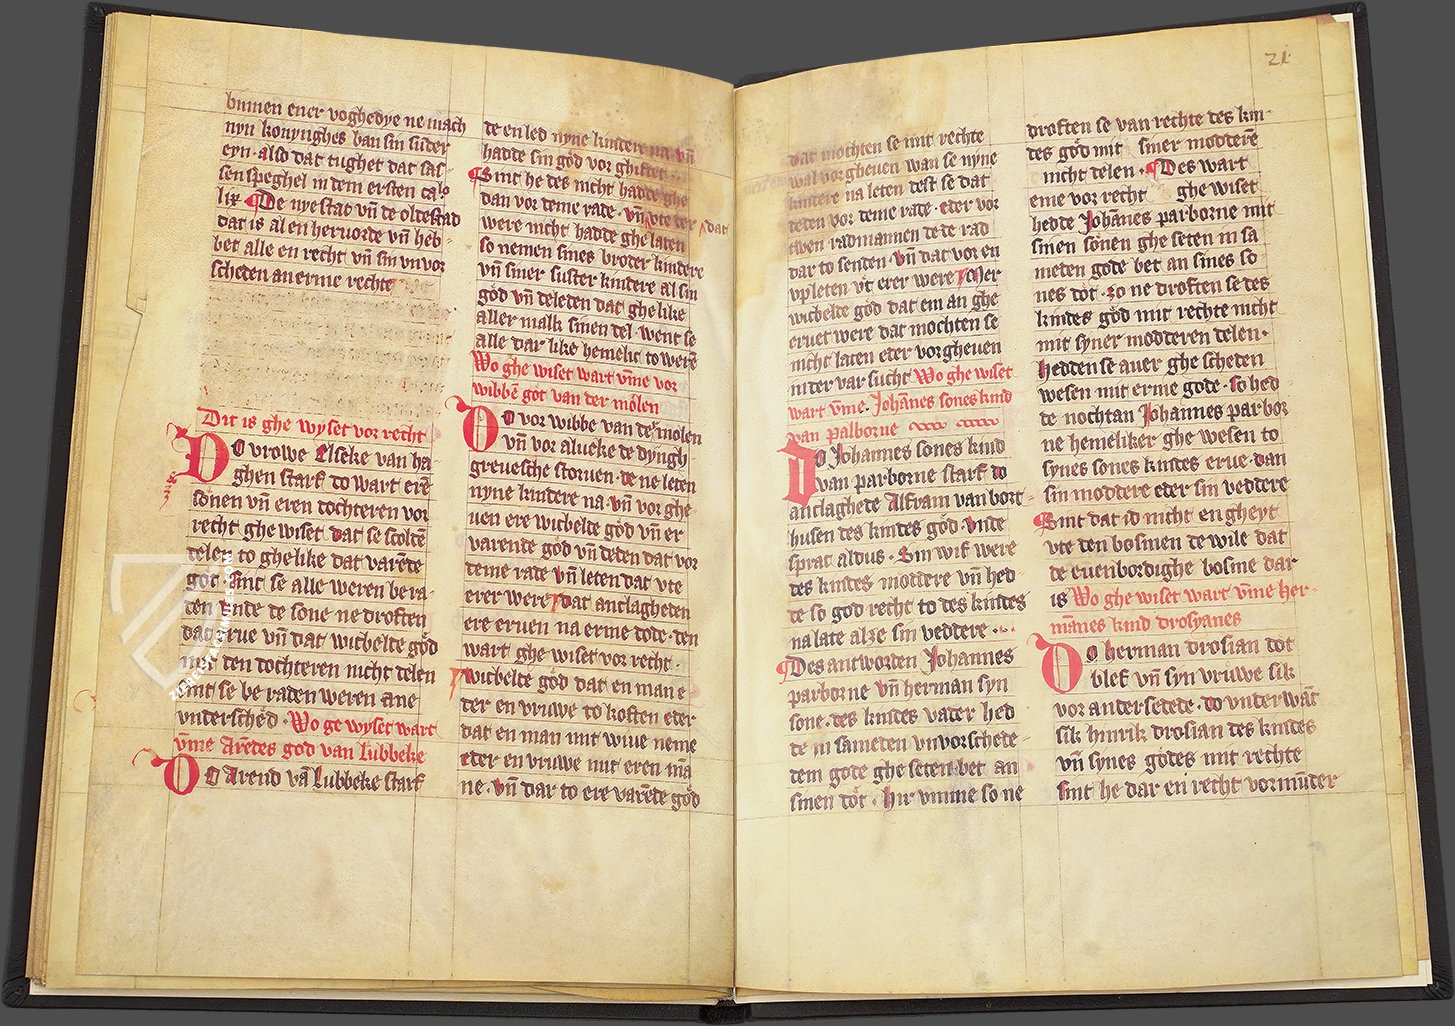 binnen ener voghedye ne mach
nyn konynghes ban sin sunder
eyn · also dat tughet dat sas-
senspeghel in dem ersten ca lo
lix · De nye stat vn̄ de oldestad
dat is al en hervorde vn̄ heb-
bet alle en recht vn̄ sin vnvor
scheden an erme rechte
Dit is ghe wyset vor recht
DO vrowe Elseke van ha-
ghen starf do wart erē
sonen vn̄ eren dochteren vor
recht ghe wiset dat se scolde
delen to ghelike dat varēde
got · Sint se alle weren bera-
den vnde de sone ne droften
dat erue vn̄ dat wicbelde god
mit den dochteren nicht delen
Sint se be raden weren ane
vnderschēd · Wo ge wyset wart
vm̄e Arēdes god van Lubbeke
DO Arend vā Lubbeke starf
de en led nyne kindere na vn̄
hadde sin god vor ghiftet
Sint he des nicht hadde ghe
dan vor deme rade · vn̄ vte der dat
were nicht hadde ghe laten
so nemen sines broder kindere
vn̄ siner suster kindere al sin
god vn̄ deleden dat ghelike
aller malk sinen del went se
alle dar like hemelic to werē
Wo ghe wiset wart vm̄e vor
wibbē got van der molen
DO vor wibbe van der molen
vn̄ vor alueke de dyngh
greuesche storuen · de ne leten
nyne kindere na · vn̄ vor ghe
uen ere wicbelde god vn̄ er
varende god vn̄ deden dat vor
deme rade vn̄ leten dat vte
erer were · dat anclagheden
ere eruen na erme dode · den
wart ghe wiset vor recht ·
wicbelde god dat en man e
der en vruwe to kosten eder
dat en man mit wiue neme
eder en vruwe mit eren mā
ne · vn̄ dar to ere varēde god
21
dat mochten se mit rechte
wal vor gheuen wan se nyne
kindere na leten dest se dat
deden vor deme rade · eder vor
twen radmannen de de rad
dar to senden · vn̄ dat vor en
vpleten vt erer were Mer
wicbelde god dat em an ghe
eruet were dat mochten se
nicht laten eder vorgheuen
in der var sucht Wo ghe wiset
wart vm̄e Johānes sones kind
van palborne
DO Johannes sones kind
van parborne starf do
anclaghede Alfram van bort-
husen des kindes god · vnde
sprak aldus · Sin wif were
des kindes moddere vn̄ hed
de so god recht to des kindes
na late alze sin veddere ·
Des antworden Johannes
parborne vn̄ herman syn
sone · des kindes vader hed
de in sameden vnvorschede-
dem gode ghe seten bet an
sinen dot · hir vmme so ne
droften se van rechte des kin-
des god mit siner modderē
nicht delen · Des wart
eme vor recht ghe wiset
hedde Johānes parborne mit
sinen sonen ghe seten in sa
meden gode bet an sines so
nes dot · zo ne droften se des
kindes god mit rechte nicht
mit syner modderen delen ·
hedden se auer ghe scheden
wesen mit erme gode · so hed
de nochtan Johannes parbor
ne hemeliker ghe wesen to
synes sones kindes erue · dan
sin moddere eder sin veddere
Sint dat id nicht en gheyt
vte den bosmen de wile dat
de euenbordighe bosme dar
is Wo ghe wiset wart vm̄e her-
mānes kind drosyanes
DO herman drosian dot
blef vn̄ syn vruwe sik
vor andersedede · do vnderwāt
sik hinrik drosian des kindes
vn̄ synes godes mit rechte
sint he dar en recht vormūder